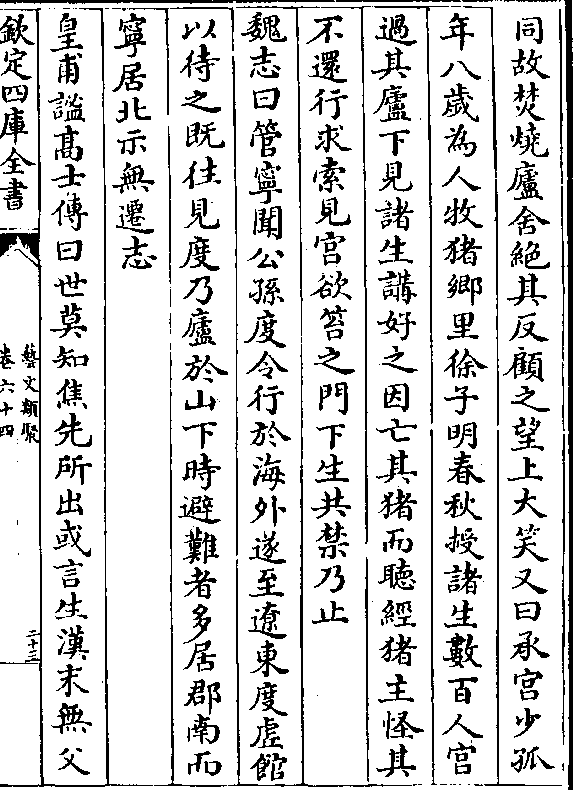 同故焚燒廬舍絕其反顧之望上大笑又曰承宫少孤
年八歲為人牧猪鄉里徐子明春秋授諸生數百人宫
過其廬下見諸生講好之因亡其猪而聽經猪主怪其
不還行求索見宫欲笞之門下生共禁乃止
魏志曰管寧聞公孫度令行於海外遂至遼東度虚館
以待之既往見度乃廬於山下時避難者多居郡南而
寧居北示無遷志
皇甫謐髙士傳曰世莫知焦先所出或言生漢末無父
欽定四庫全書
藝文類聚
卷六十四
二十三